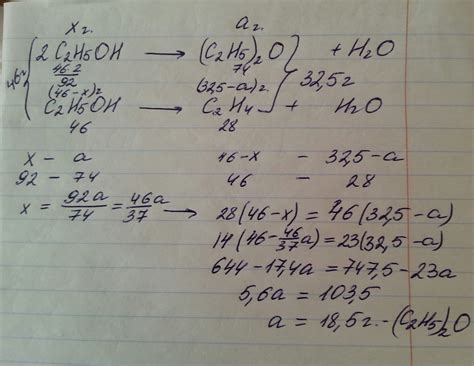 x г. a г.
2 C2H5OH → (C2H5)2O + H2O
46·2 74
92
46г (46-x)г (32,5-a)г. 32,5г
C2H5OH → C2H4 + H2O
46 28
x - a 46-x - 32,5-a
92 - 74 46 - 28
x = 92a/74 = 46a/37 → 28(46-x) = 46(32,5-a)
14(46-46/37a) = 23(32,5-a)
644-17,4a = 747,5-23a
5,6a = 103,5
a = 18,5г. - (C2H5)2O